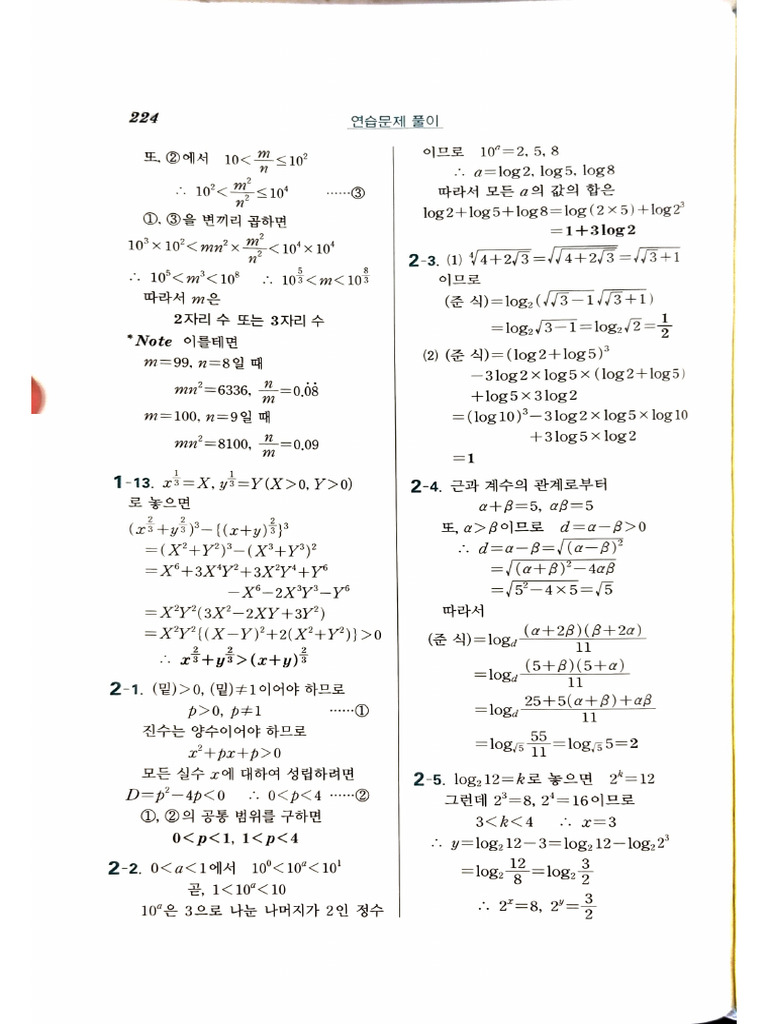 224
연습문제 풀이
또, ②에서 10<m/n≤10²
∴ 10²<m²/n²≤10⁴ ……③
①, ③을 변끼리 곱하면
10³×10²<mn²×m²/n²<10⁴×10⁴
∴ 10⁵<m³<10⁸ ∴ 10^(5/3)<m<10^(8/3)
따라서 m은
2자리 수 또는 3자리 수
*Note 이를테면
m=99, n=8일 때
mn²=6336, n/m=0.0̇8̇
m=100, n=9일 때
mn²=8100, n/m=0.09
1-13. x^(1/3)=X, y^(1/3)=Y(X>0, Y>0)
로 놓으면
(x^(2/3)+y^(2/3))³-{(x+y)^(2/3)}³
=(X²+Y²)³-(X³+Y³)²
=X⁶+3X⁴Y²+3X²Y⁴+Y⁶
-X⁶-2X³Y³-Y⁶
=X²Y²(3X²-2XY+3Y²)
=X²Y²{(X-Y)²+2(X²+Y²)}>0
∴ x^(2/3)+y^(2/3)>(x+y)^(2/3)
2-1. (밑)>0, (밑)≠1이어야 하므로
p>0, p≠1 ……①
진수는 양수이어야 하므로
x²+px+p>0
모든 실수 x에 대하여 성립하려면
D=p²-4p<0 ∴ 0<p<4 ……②
①, ②의 공통 범위를 구하면
0<p<1, 1<p<4
2-2. 0<a<1에서 10⁰<10ᵃ<10¹
곧, 1<10ᵃ<10
10ᵃ은 3으로 나눈 나머지가 2인 정수
이므로 10ᵃ=2, 5, 8
∴ a=log2, log5, log8
따라서 모든 a의 값의 합은
log2+log5+log8=log(2×5)+log2³
=1+3log2
2-3. (1) ⁴√(4+2√3)=√(√(4+2√3))=√(√3+1)
이므로
(준 식)=log₂(√(√3-1)√(√3+1))
=log₂√(3-1)=log₂√2=1/2
(2) (준 식)=(log2+log5)³
-3log2×log5×(log2+log5)
+log5×3log2
=(log10)³-3log2×log5×log10
+3log5×log2
=1
2-4. 근과 계수의 관계로부터
α+β=5, αβ=5
또, α>β이므로 d=α-β>0
∴ d=α-β=√((α-β)²)
=√((α+β)²-4αβ)
=√(5²-4×5)=√5
따라서
(준 식)=log_d (α+2β)(β+2α)/11
=log_d (5+β)(5+α)/11
=log_d (25+5(α+β)+αβ)/11
=log_√5 55/11=log_√5 5=2
2-5. log₂12=k로 놓으면 2ᵏ=12
그런데 2³=8, 2⁴=16이므로
3<k<4 ∴ x=3
∴ y=log₂12-3=log₂12-log₂2³
=log₂ 12/8=log₂ 3/2
∴ 2ˣ=8, 2ʸ=3/2